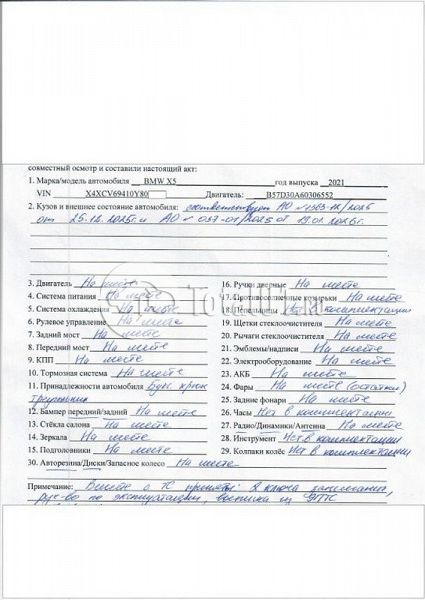 совместный осмотр и составили настоящий акт:
1. Марка/модель автомобиля BMW X5 год выпуска 2021
VIN X4XCV69410Y80 Двигатель: B57D30A60306552
2. Кузов и внешнее состояние автомобиля: соответствует АО
от 25.12.2025г. и АО № 037-01/2025 от
3. Двигатель На месте
4. Система питания На месте
5. Система охлаждения На месте
6. Рулевое управление На месте
7. Задний мост На месте
8. Передний мост На месте
9. КПП На месте
10. Тормозная система На месте
11. Принадлежности автомобиля Букс. крюк
12. Бампер передний/задний На месте
13. Стёкла салона На месте
14. Зеркала На месте
15. Подголовники На месте
16. Ручки дверные На месте
17. Противосолнечные козырьки На месте
18. Пепельницы Нет в комплектации
19. Щетки стеклоочистителя На месте
20. Рычаги стеклоочистителя На месте
21. Эмблемы/надписи На месте
22. Электрооборудование На месте
23. АКБ На месте
24. Фары На месте (остатки)
25. Задние фонари На месте
26. Часы Нет в комплектации
27. Радио/Динамики/Антенна На месте
28. Инструмент Нет в комплектации
29. Колпаки колёс Нет в комплектации
30. Авторезина/Диски/Запасное колесо На месте
Примечание: Вместе с ТС приняты: 2 ключа зажигания,
рук-во по эксплуатации, выписка из ЭПТС